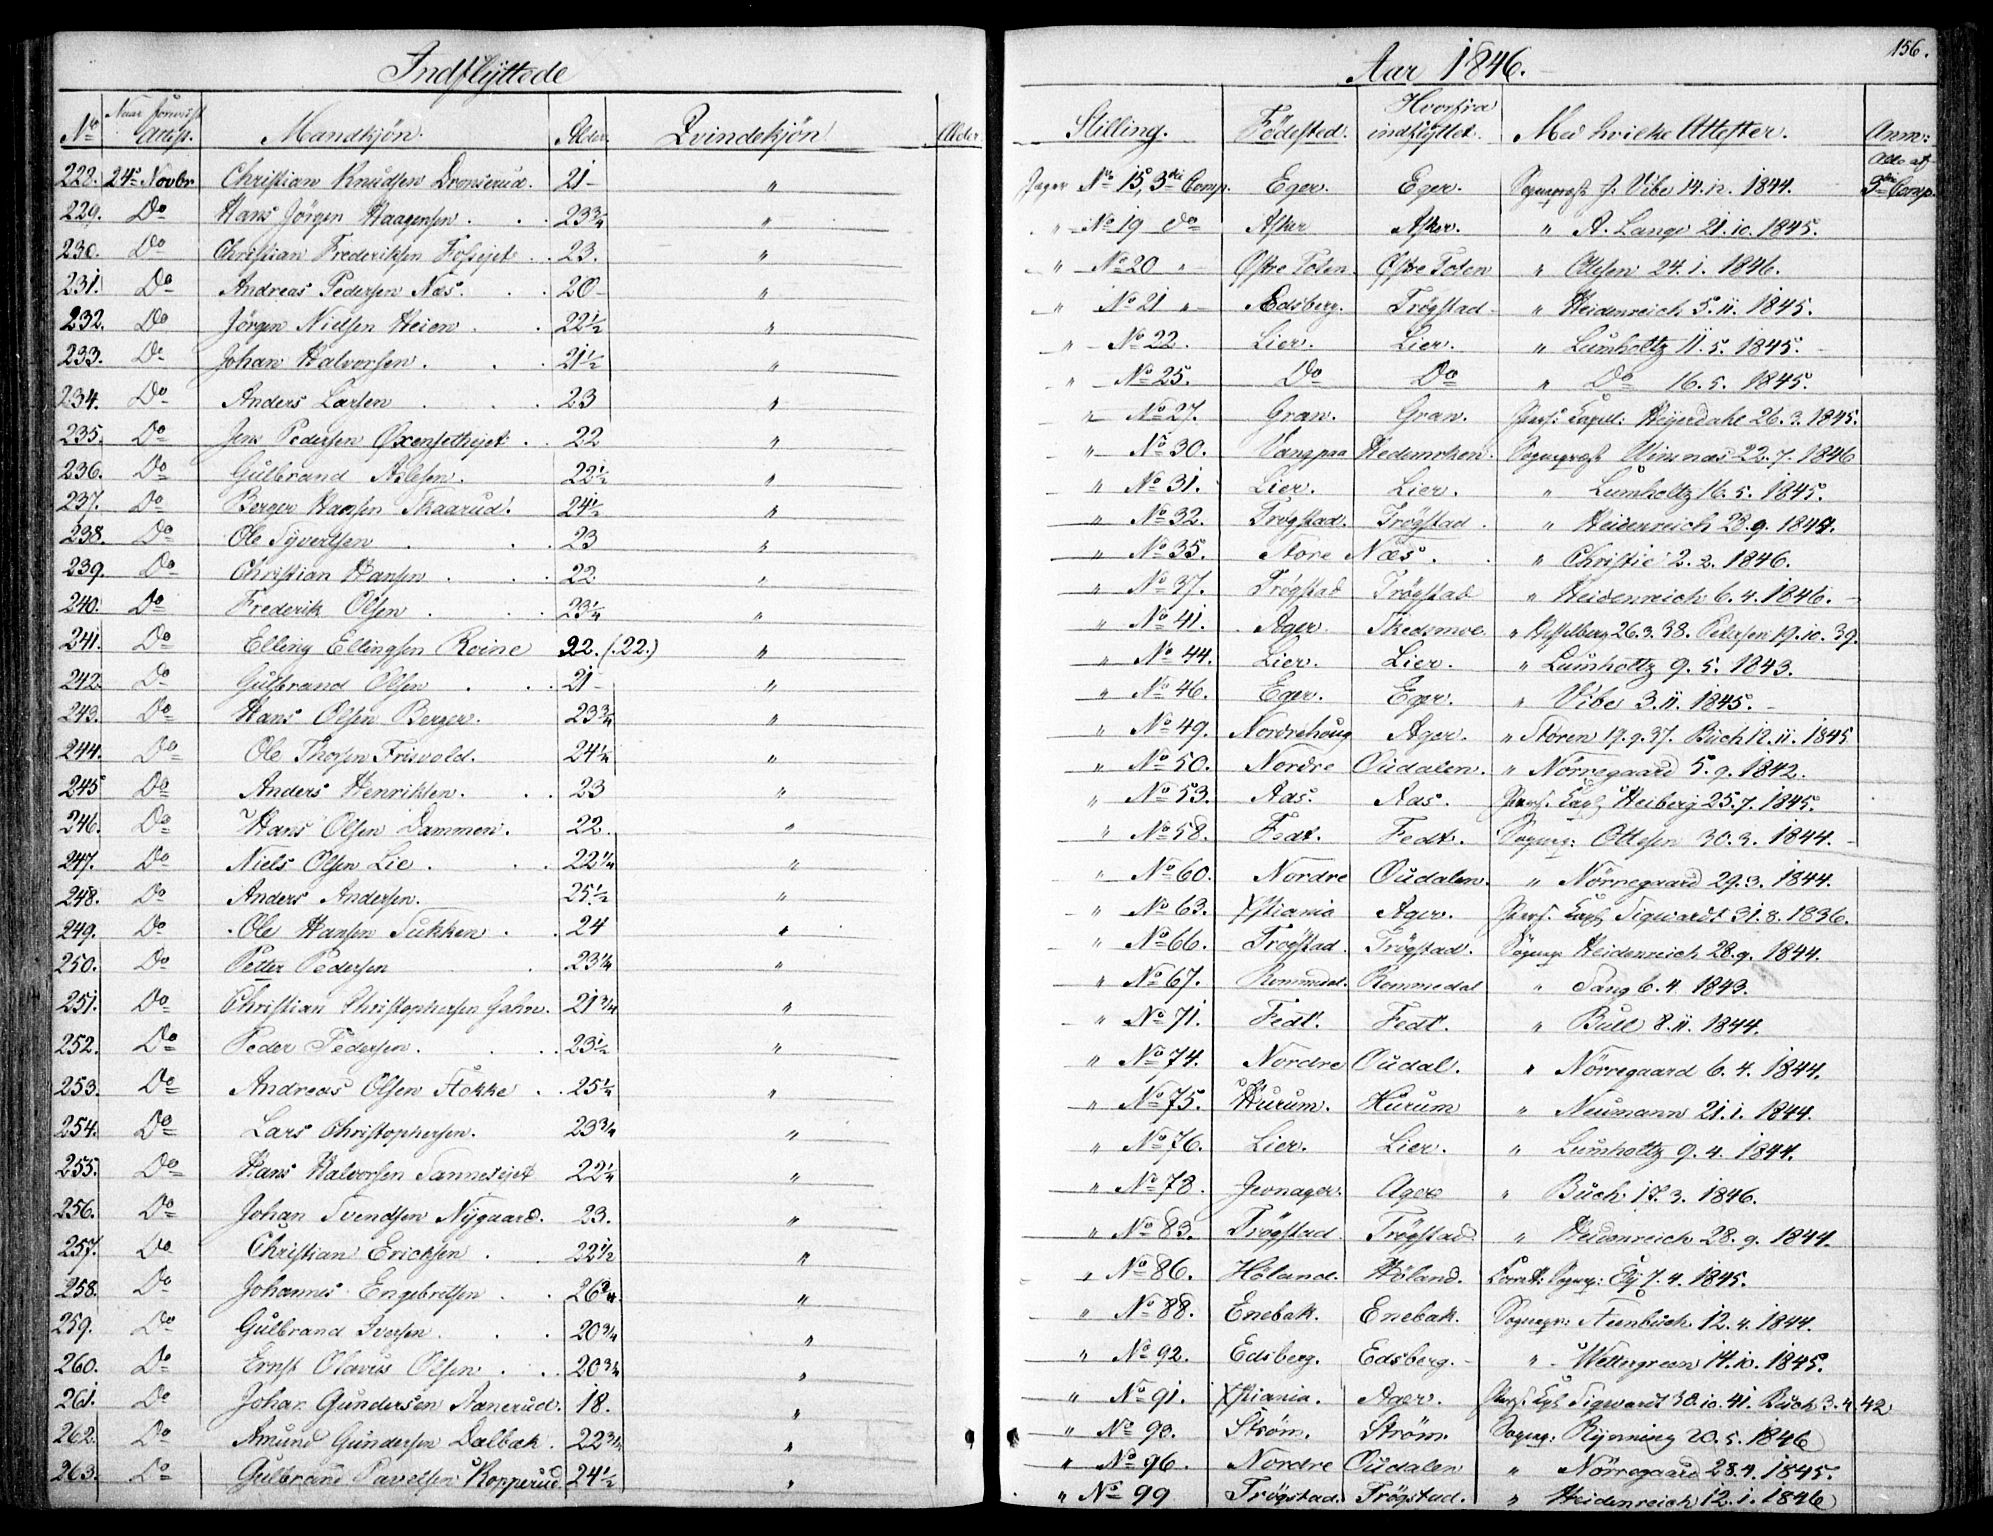 Indflyttede
Nr Naar Anesp. Mandkjön. Alder. Qvindekjön Alder
228. 24de Novbr Christian Knudsen Dronserud. 21 - "
229. Do Hans Jörgen Haagensen. 23 3/4 "
230. Do Christian Frederiksen Fossejet. 23. "
231. Do Andreas Pedersen Næs. 20 - "
232. Do Jörgen Nielsen Heien. 22 1/2 "
233. Do Johan Halvorsen. 21 1/2 "
234. Do Anders Larsen 23 "
235. Do Jens Pedersen Oxensethejet. 22 "
236. Do Gulbrand Aslesen. 22 1/2 "
237. Do Berger Hansen Skaarud. 24 1/2 "
238. Do Ole Syvertsen 23 "
239. Do Christian Hansen. 22. "
240. Do Frederik Olsen 23 1/4 "
241. Do Elling Ellingsen Roine 22. (:22.) "
242. Do Gulbrand Olsen 21 - "
243. Do Hans Olsen Berger. 23 3/4 "
244. Do Ole Thorsen Frisvold. 24 1/4 "
245 Do Anders Henriksen. 23 "
246. Do Hans Olsen Dammen. 22. "
247. Do Niels Olsen Lie. 22 1/4 "
248. Do Anders Andersen. 25 1/2 "
249. Do Ole Hansen Tukken. 24 "
250. Do Petter Pedersen 23 1/4 "
251. Do Christian Christophersen Jahn. 21 3/4 "
252. Do Peder Pedersen. 23 1/2 "
253. Do Andreas Olsen Stokke. 25 1/4 "
254. Do Lars Christophersen. 23 3/4 "
255. Do Hans Halvorsen Tannesejet 22 1/4 "
256. Do Johan Svendsen Nygaard. 23. "
257. Do Christian Ericksen. 22 1/2 "
258. Do Johannes Engebretsen. 26 3/4. "
259. Do Gulbrand Iversen. 20 3/4 "
260. Do Ernst Olavus Olsen. 20 3/4 "
261. Do Johan Gundersen Aanerud. 18. "
262. Do Amund Gundersen Dalbak. 22 3/4 "
263. Do Gulbrand Pavelsen Kopperud 24 1/2 "
Aar 1846. 156.
Stilling. Födested. Hvorfra indflyttet. Med hvilke Attester. Anm:
Jager No 15, 3die Comp. Eger. Eger. Sognepræst J. Vibe 14.12. 1844. Alle af 3die Comp.
" No 19 do Asker Asker. " A. Lange 21.10. 1845.
" No 20 " Østre Toten. Østre Toten " Ottesen 24.1. 1846.
" No 21 " Edsberg. Trögstad " Heidenreich 5.11. 1845.
" No 22. Lier. Lier. " Lumholtz 11.5. 1845.
" No 25. Do Do " Do 16.5. 1845.
" No 27. Gran. Gran. Pers: Capel: Heijerdahl 26.3. 1845.
" No 30. Vang paa Hedemarken. Sognepræst Winsnes 22.7. 1846
" No 31. Lier. Lier. " Lumholtz 16.5. 1845.
" No 32. Trögstad. Trögstad. " Heidenreich 28.9. 1844.
" No 35. Store Næs. " Christie 2.2. 1846.
" No 37. Trögstad Trögstad " Heidenreich 6.4. 1846.
" No 41. Ager. Skedsmoe " Hesselberg 26.3.38. Petersen 19.10.39.
" No 44. Lier. Lier. " Lumholtz 9.5. 1843.
" No 46. Eger. Eger. " Vibe 3.11. 1845.
" No 49. Nordrehoug Ager. " Støren 19.9.37. Buch 12.11. 1845
" No 50. Nordre Oudalen. " Nörregaard 5.9. 1842.
" No 53. Aas. Aas. Pers. Capl Heiberg 25.7. 1845.
" No 58. Fedt. Fedt. Sognep: Ottesen 30.3. 1844.
" No 60. Nordre Oudalen. " Nörregaard 29.3. 1844.
" No 63. Xstiania Ager. Pers. Capl Sigwardt 31.8. 1836.
" No 66. Trögstad. Trögstad. Sognep. Heidenreich 28.9. 1844.
" No 67. Rommedal. Rommedal " Tang 6.4. 1843.
" No 71. Fedt. Fedt. " Bull 8.11. 1844.
" No 74. Nordre Oudal. " Nörregaard 6.4. 1844.
" No 75. Hurum. Hurum " Neumann 21.1. 1844.
" No 76. Lier. Lier. " Lumholtz 9.4. 1844.
" No 78. Jevnager. Ager " Buch 17.3. 1846.
" No 83. Trögstad. Trögstad. " Heidenreich 28.9. 1844.
" No 86. Höland. Höland. Const: Sognep: Ely 7.4. 1845.
" No 88. Enebak. Enebak. Sognepr: Steenbuch 12.4. 1844.
" No 92. Edsberg. Edsberg. " Wettergreen 14.10. 1845.
" No 91. Xstiania. Ager. Pers. Capl Sigwardt 30.10.41. Buch 3.4.42
" No 90. Ström. Ström. Sognep: Rynning 20.5. 1846
" No 96. Nordre Oudalen " Nörregaard 28.4. 1845.
" No 99 Trögstad. Trögstad. " Heidenreich 12.1. 1846